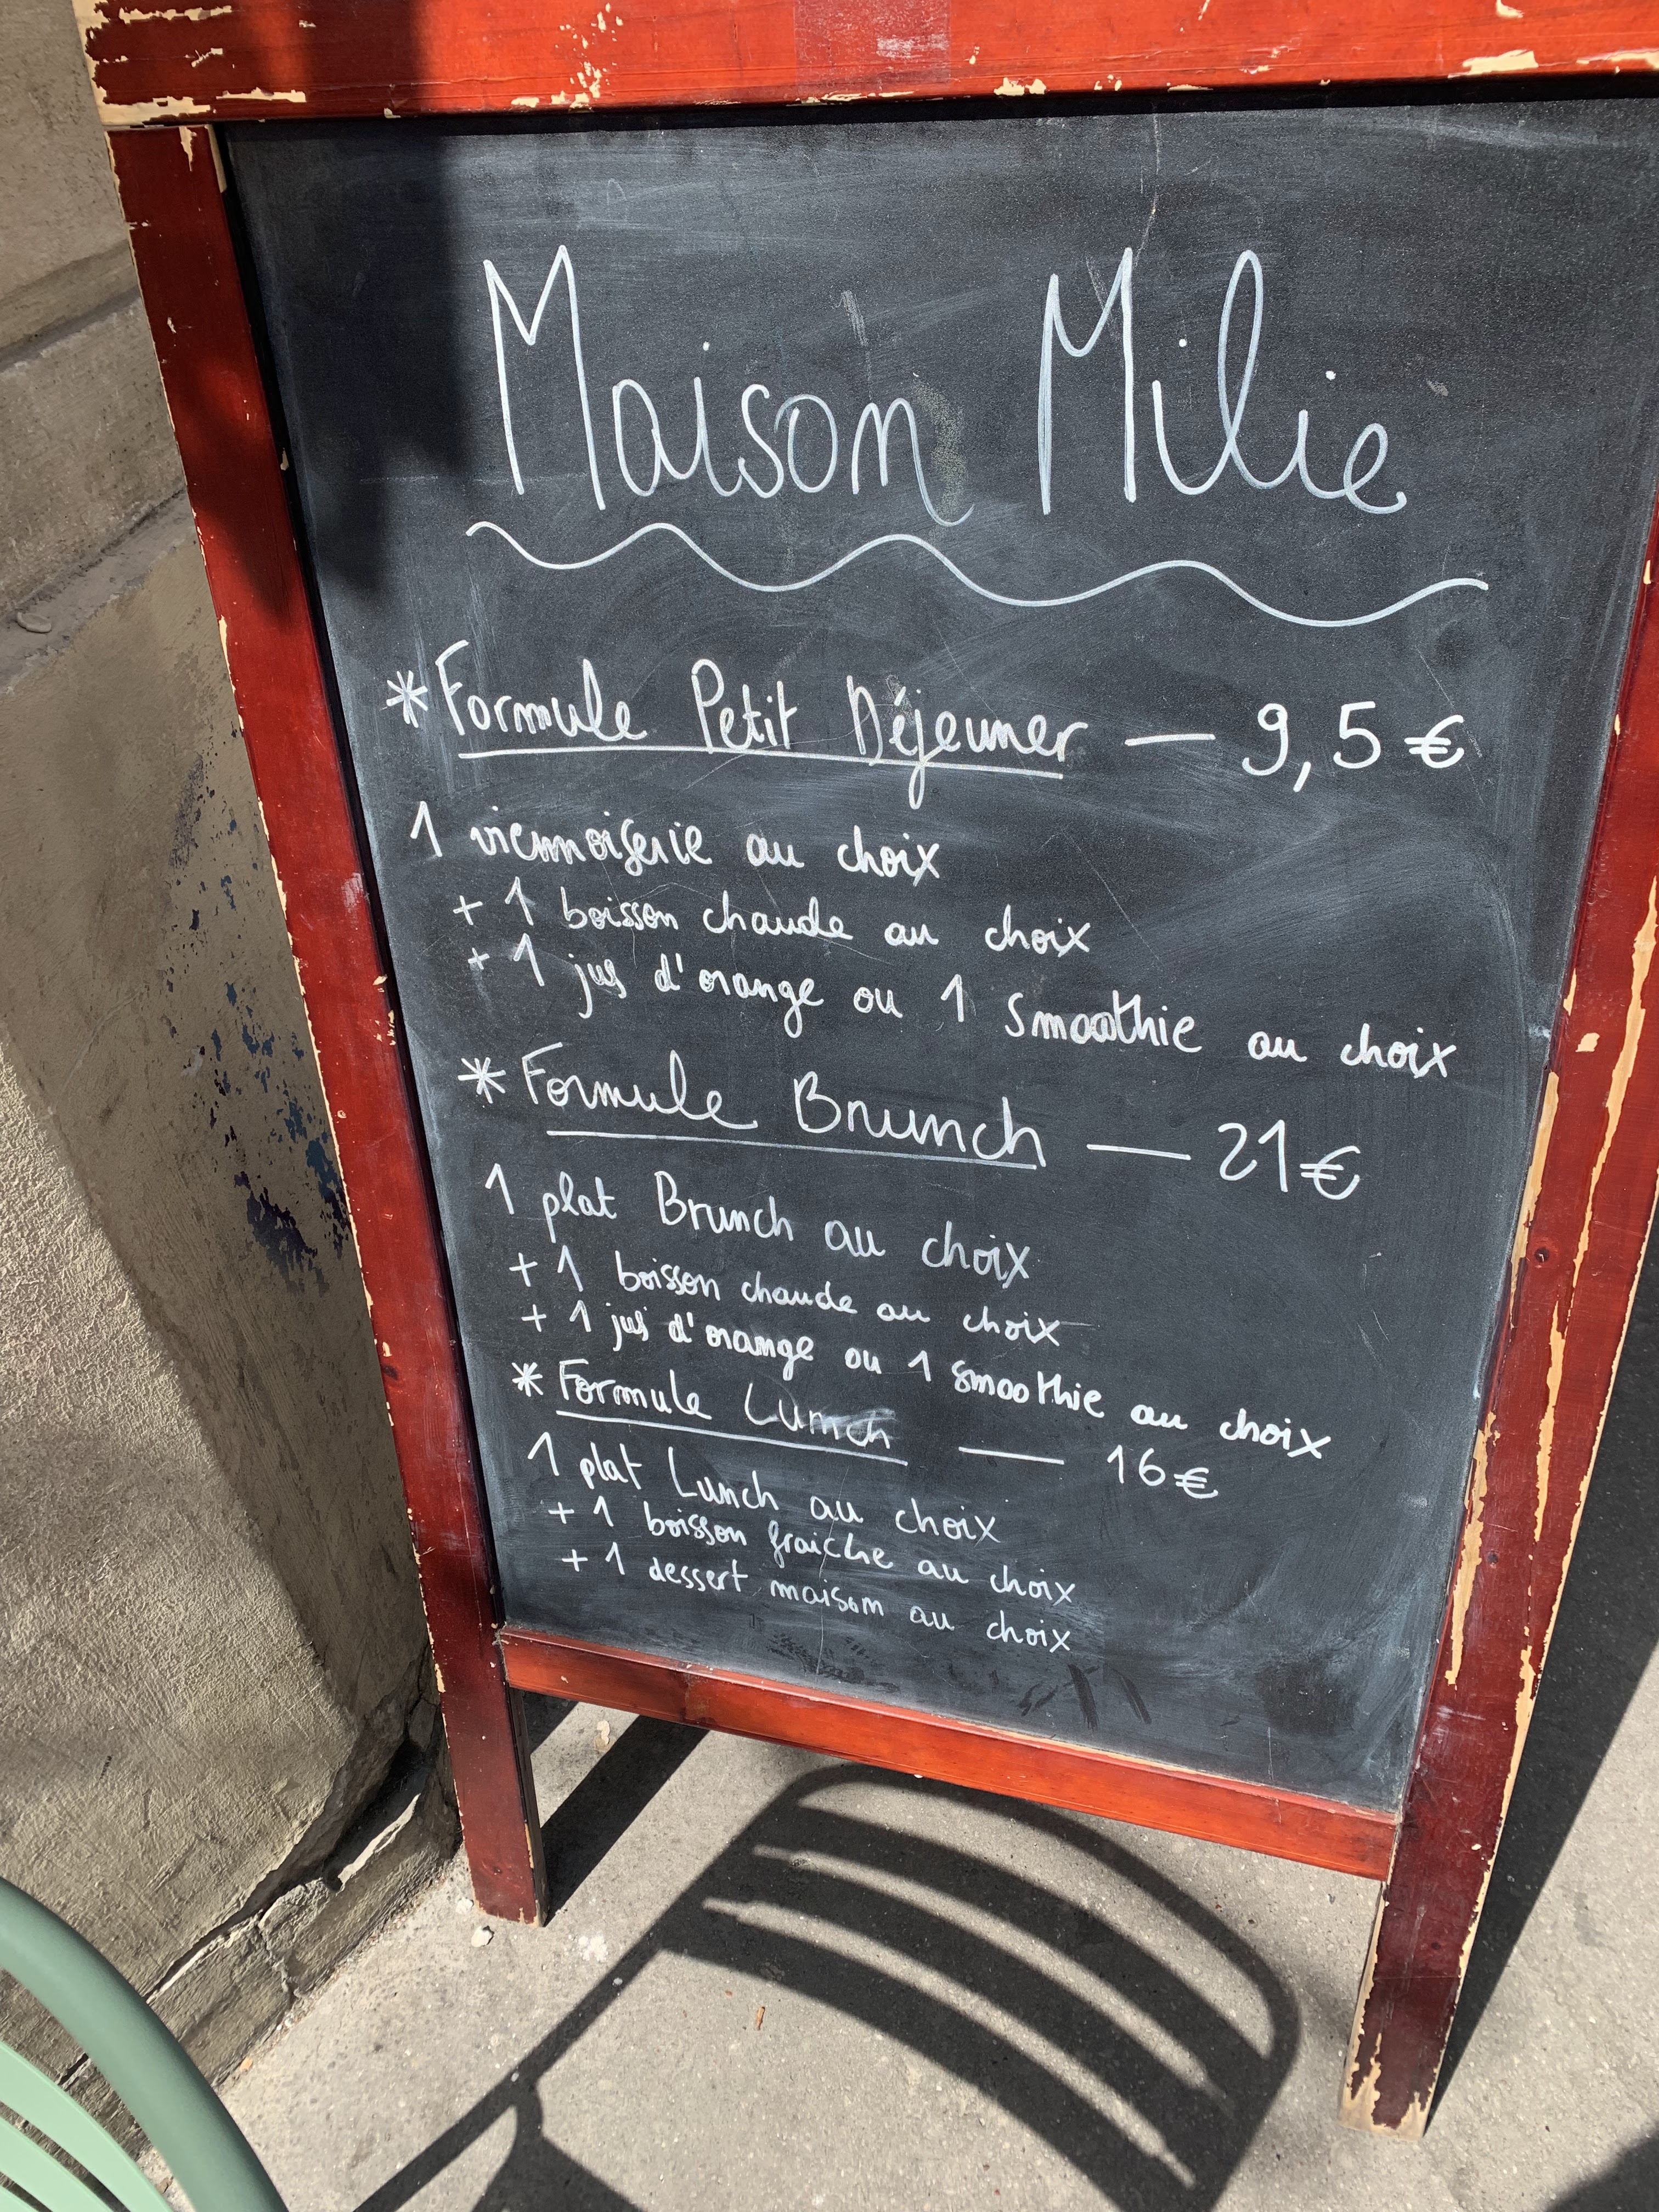 Maison Milie
* Formule Petit Déjeuner — 9,5 €
1 viennoiserie au choix
+ 1 boisson chaude au choix
+ 1 jus d'orange ou 1 smoothie au choix
* Formule Brunch — 21€
1 plat Brunch au choix
+ 1 boisson chaude au choix
+ 1 jus d'orange ou 1 smoothie au choix
* Formule Lunch — 16€
1 plat Lunch au choix
+ 1 boisson fraiche au choix
+ 1 dessert maison au choix